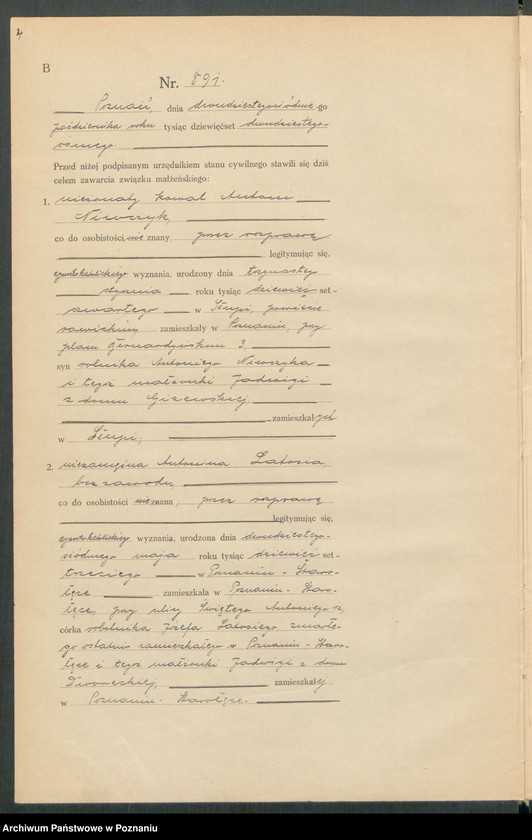 4
B
Nr. 891.
Poznań dnia dwudziestego siódmego
października roku tysiąc dziewięćset dwudziestego-
ósmego
Przed niżej podpisanym urzędnikiem stanu cywilnego stawili się dziś
celem zawarcia związku małżeńskiego:
1. nieżonaty kowal Antoni
Niewczyk,
co do osobistości nie znany, przez rozprawę
legitymując się,
rzymskokatolickiego wyznania, urodzony dnia trzynastego
stycznia roku tysiąc dziewięć set-
czwartego w Słupi, powiecie
rawickim zamieszkały w Poznaniu, przy
placu Bernardyńskim 3.
syn rolnika Antoniego Niewczyka
i tegoż małżonki Jadwigi
z domu Giżewskiej,
zamieszkałych
w Słupi,
2. niezamężna Antonina Latosia,
bez zawodu,
co do osobistości nieznana, przez rozprawę
legitymując się,
rzymskokatolickiego wyznania, urodzona dnia dwudziestego-
siódmego maja roku tysiąc dziewięć set-
trzeciego w Poznaniu - Staro-
łęce zamieszkała w Poznaniu - Staro-
łęce, przy ulicy Świętego Antoniego
córka robotnika Józefa Latosiego, zmarłe-
go ostatnio zamieszkałego w Poznaniu - Staro-
łęce i tegoż małżonki Jadwigi z domu
Dworeckiej, zamieszkałej
w Poznaniu - Starołęce.
Archiwum Państwowe w Poznaniu